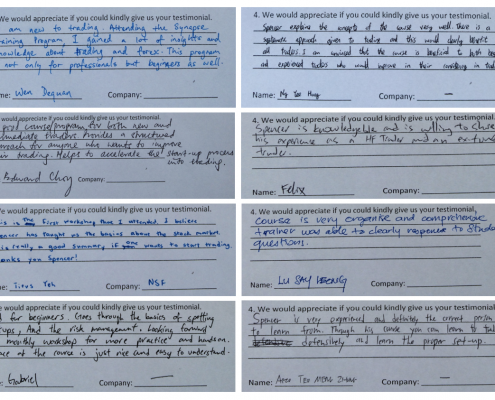 We would appreciate if you could kindly give us your testimonial.
am new to trading. Attending the Synapse
raining Program I gained a lot of insights and
nowledge about trading and forex. This program
not only for professionals but beginners as well.
me: Wen Dequan Company:
4. We would appreciate if you could kindly give us your testimonial.
Spencer explains the concepts of the course very well. There is a
systematic approach given to trading and this would clearly benefit
all traders. I am convinced that the course is beneficial to both
and experienced traders who would improve in their consistency in
Name: Ng Tee Company: —
would appreciate if you could kindly give us your testimonial.
good course/program for both new and
mediate traders. Provides a structured
roach for anyone who wants to improve
ir trading. Helps to accelerate the start-up process
with trading.
Edward Choy Company:
4. We would appreciate if you could kindly give us your testimonial.
Spencer is knowledgeable and is willing to share
his experience as a HF Trader and an ex-fund
trader.
Name: Felix Company:
We would appreciate if you could kindly give us your testimonial.
is is the first workshop that I attended. I believe
encer has taught us the basics about the stock market.
is really a good summary if one wants to start trading.
anks you Spencer!
me: Teh Company: NSF
4. We would appreciate if you could kindly give us your testimonial.
Course is very organise and comprehensive
trainer was able to clearly response to
questions.
Name: Lu Say Company:
would appreciate if you could kindly give us your testimonial.
d for beginners. Goes through the basics of spotting
ups, And the risk management. Looking forward
monthly workshop for more practice and handson.
ce of the course is just nice and easy to understand.
: Gabriel Company: —
4. We would appreciate if you could kindly give us your testimonial.
Spencer is very experienced and definitely the correct person
to learn from. Through his course you can learn to
defensively and learn the proper set-up.
Name: Teo Meng Company: —